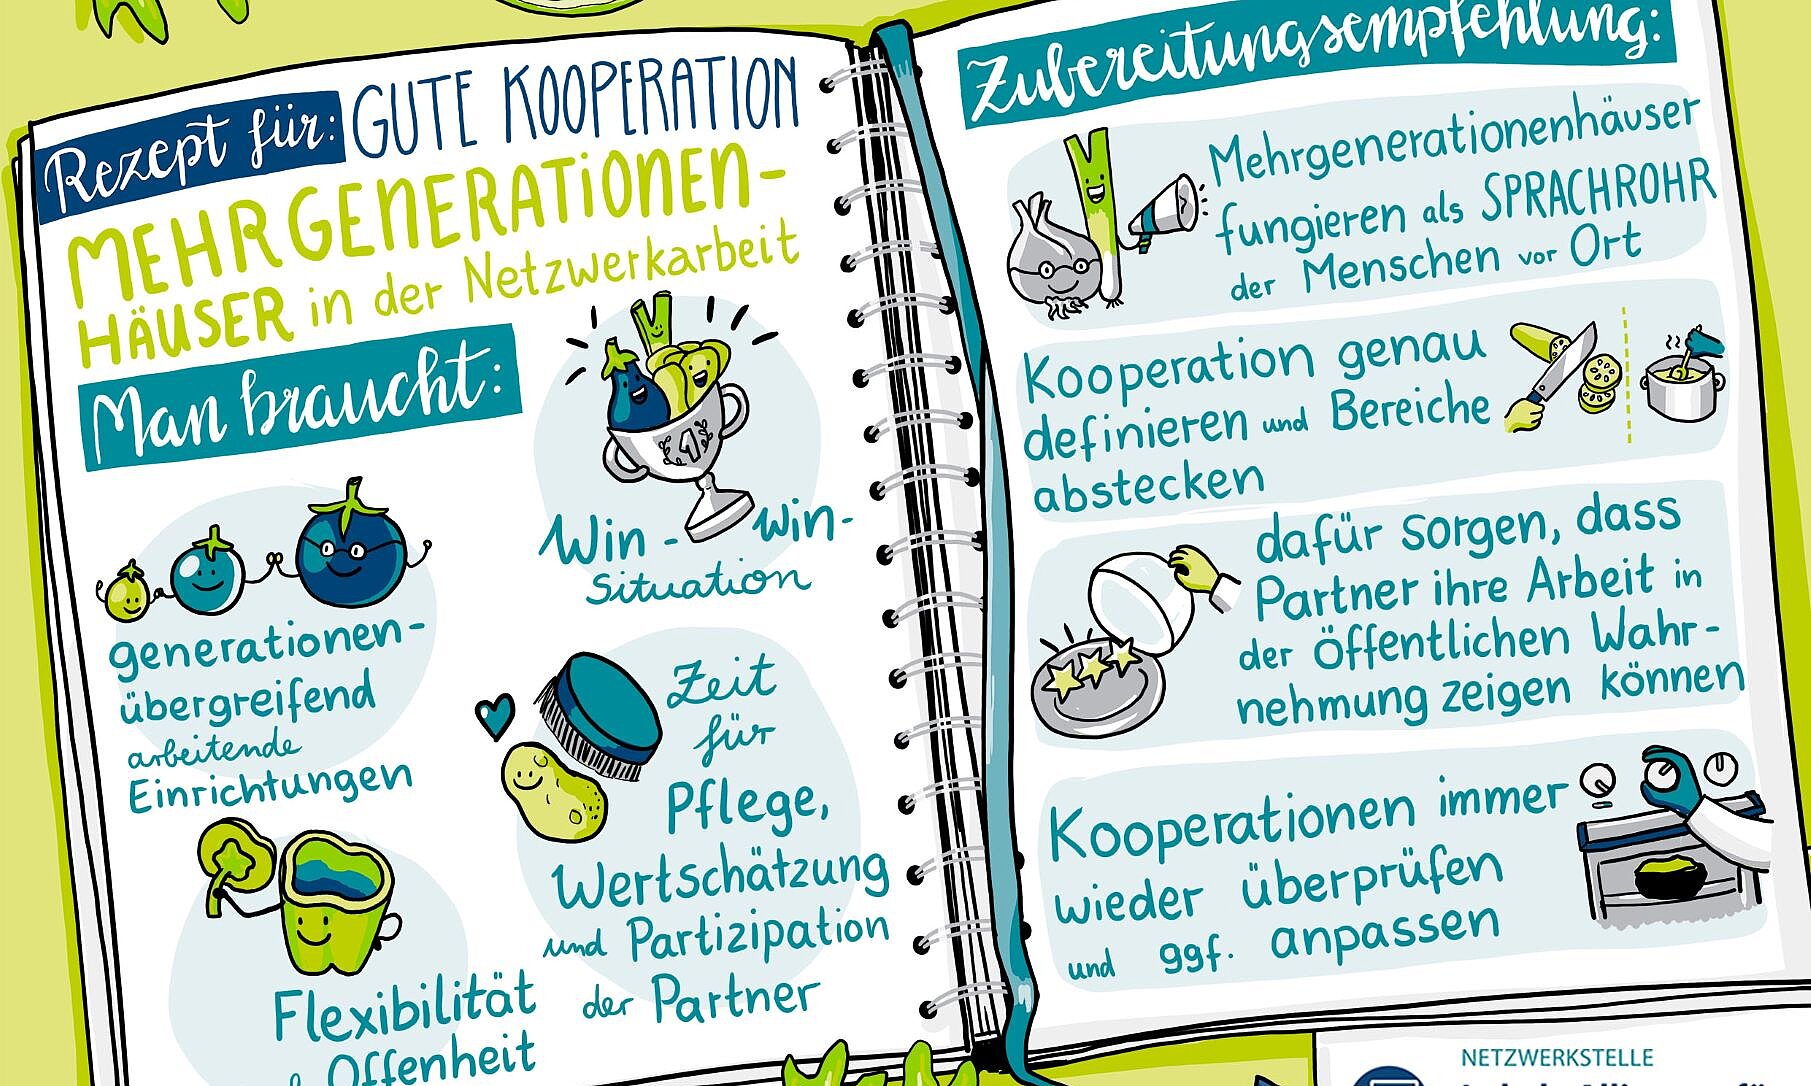 Rezept für: GUTE KOOPERATION
MEHRGENERATIONEN-
HÄUSER in der Netzwerkarbeit
Man braucht:
1
Win - Win-
Situation
generationen-
übergreifend
arbeitende
Einrichtungen
Zeit
für
Pflege,
Wertschätzung
und Partizipation
der Partner
Flexibilität
& Offenheit
Zubereitungsempfehlung:
Mehrgenerationenhäuser
fungieren als SPRACHROHR
der Menschen vor Ort
Kooperation genau
definieren und Bereiche
abstecken
dafür sorgen, dass
Partner ihre Arbeit in
der öffentlichen Wahr-
nehmung zeigen können
Kooperationen immer
wieder überprüfen
und ggf. anpassen
NETZWERKSTELLE